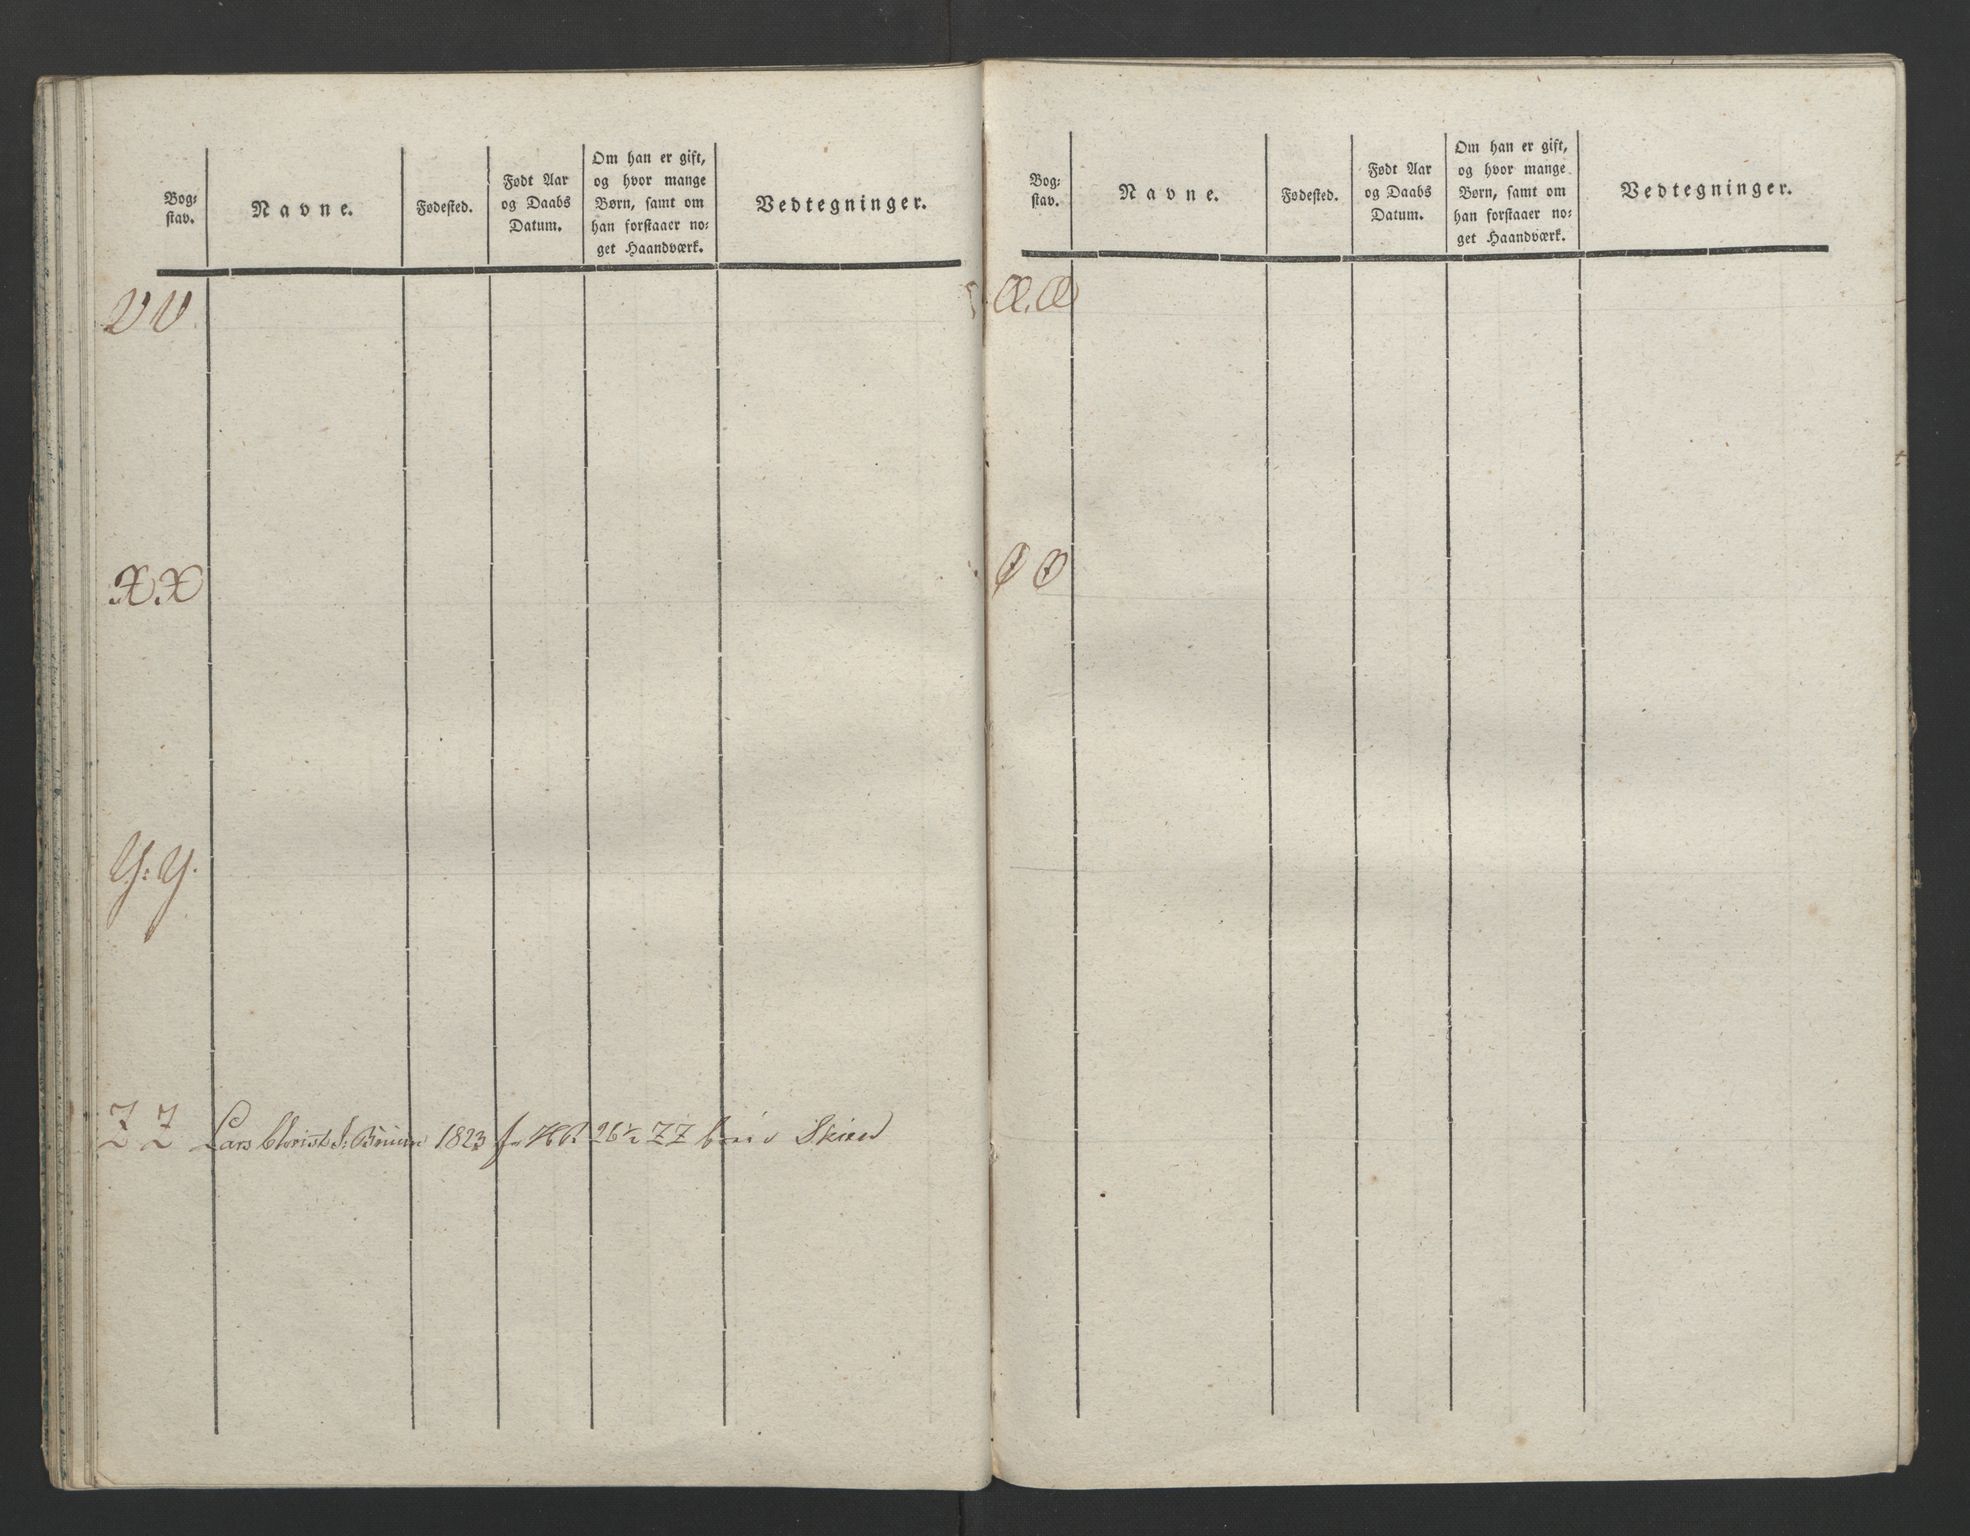 Bog:
stav.
Navne.
Fødested.
Født Aar
og Daabs
Datum.
Om han er gift,
og hvor mange
Børn, samt om
han forstaaer no:
get Haandværk.
Vedtegninger.
V V
X. X
Y: Y.
Z Z Lars Christ J: 1823 26½ Z Z
Bog:
stav.
Navne.
Fødested.
Født Aar
og Daabs
Datum.
Om han er gift,
og hvor mange
Børn, samt om
han forstaaer no:
get Haandværk.
Vedtegninger.
Æ. Æ
Ø Ø